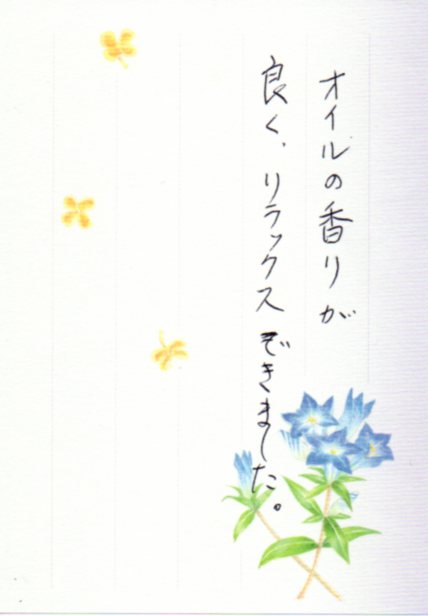 オイルの香りが
良く、リラックスできました。